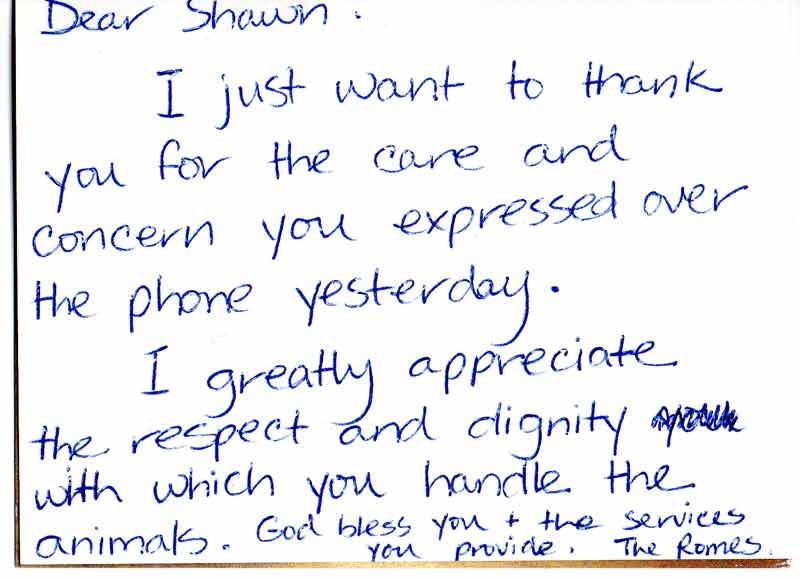 Dear Shawn.
I just want to thank
you for the care and
concern you expressed over
the phone yesterday.
I greatly appreciate
the respect and dignity
with which you handle the
animals. God bless you + the services
you provide. The Romes.